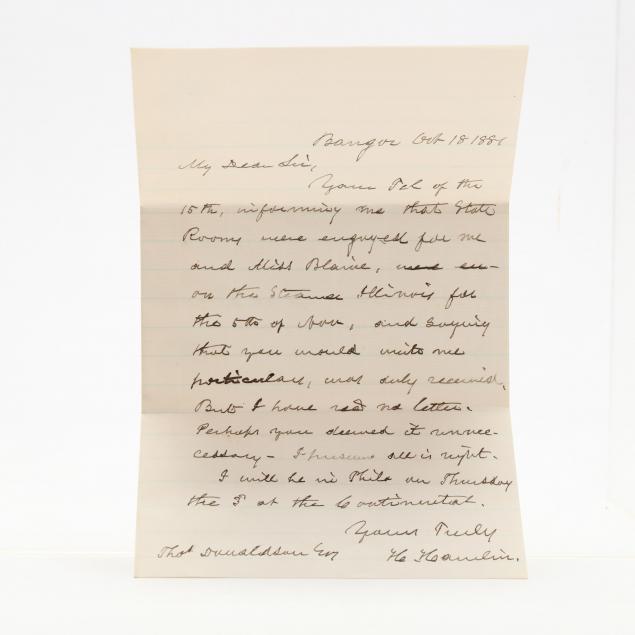 Bangor Oct 18 1881
My Dear Sir,
Your Tel of the
15th, informing me that State
Rooms were engaged for me
and Miss Blaine, were en-
on the Steamer Illinois for
the 5th of Nov, and saying
that you would write me
particulars, was duly received.
But I have recd no letter.
Perhaps you deemed it unnec-
cessary - I presume all is right.
I will be in Phila on Thursday
the 3 at the Continental.
Yours Truly
Thos Donaldson Esq H Hamlin.